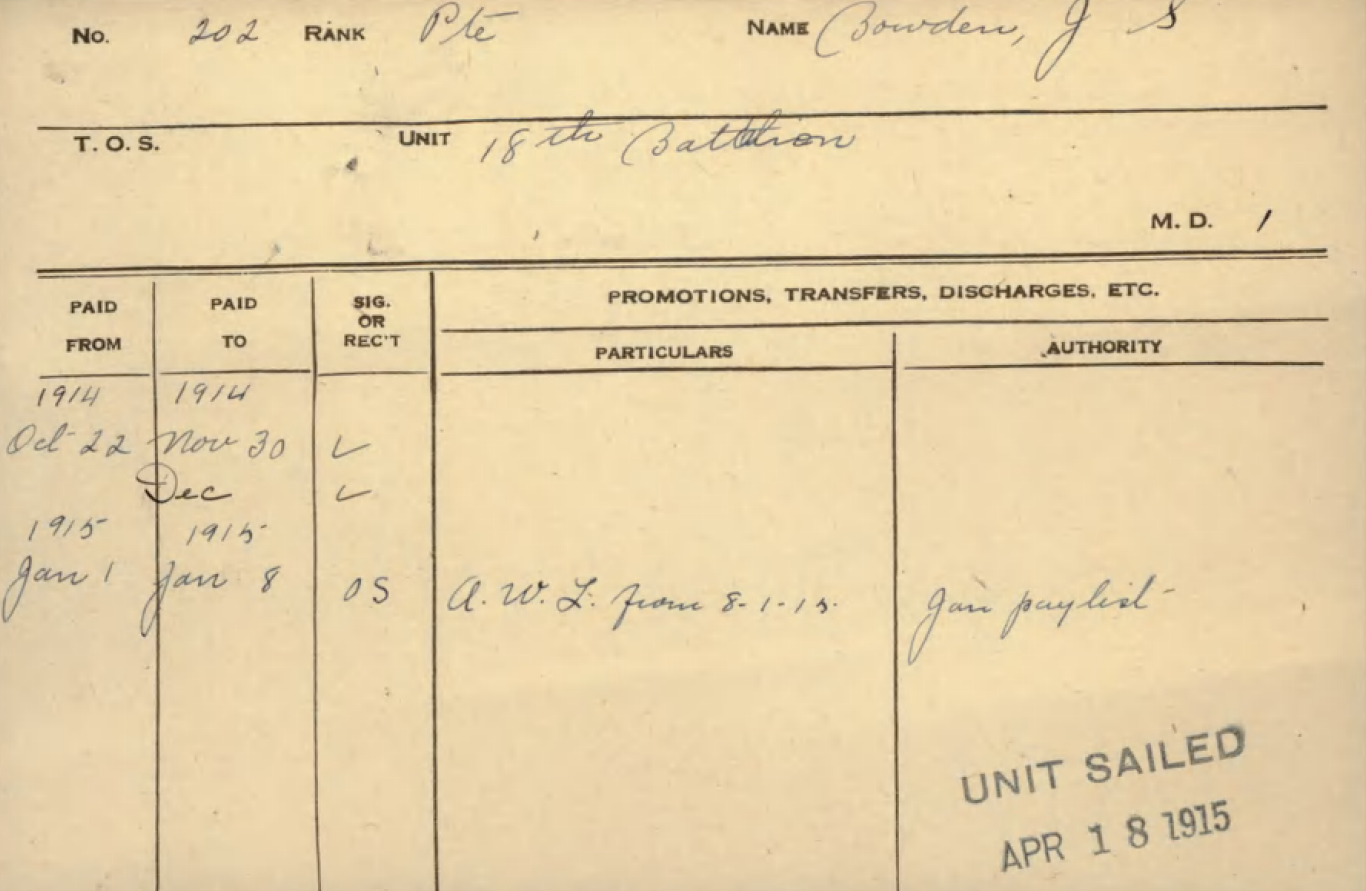 No. 202 RANK Pte NAME Bowden, J S
T. O. S. UNIT 18th Battalion
M. D. 1
PAID FROM PAID TO SIG. OR REC'T PROMOTIONS, TRANSFERS, DISCHARGES, ETC.
PARTICULARS AUTHORITY
1914 1914
Oct 22 Nov 30 ✓
Dec ✓
1915 1915
Jan 1 Jan 8 OS A. W. L. from 8-1-15. Jan paylist
UNIT SAILED
APR 18 1915